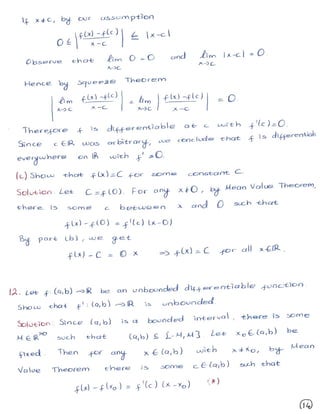 If x≠c, by our assumption
0 ≤ |f(x)-f(c) / x-c| ≤ |x-c|
Observe that lim x→c 0 = 0 and lim x→c |x-c| = 0.
Hence by Squeeze Theorem
|lim x→c f(x)-f(c) / x-c| = lim x→c |f(x)-f(c) / x-c| = 0
Therefore f is differentiable at c with f'(c)=0.
Since c ∈ R was arbitrary, we conclude that f is differentiable
everywhere on R with f'=0.
(c) Show that f(x)=C for some constant C.
Solution: Let C=f(0). For any x≠0, by Mean Value Theorem,
there is some c between x and 0 such that
f(x)-f(0) = f'(c)(x-0)
By part (b), we get
f(x)-C = 0 x ⇒ f(x)=C for all x∈R.
12. Let f:(a,b)→R be an unbounded differentiable function.
Show that f':(a,b)→R is unbounded.
Solution: Since (a,b) is a bounded interval, there is some
M∈R>0 such that (a,b) ⊆ [-M,M]. Let x₀∈(a,b) be
fixed. Then for any x∈(a,b) with x≠x₀, by Mean
Value Theorem there is some c∈(a,b) such that
f(x)-f(x₀) = f'(c)(x-x₀) (*)
14